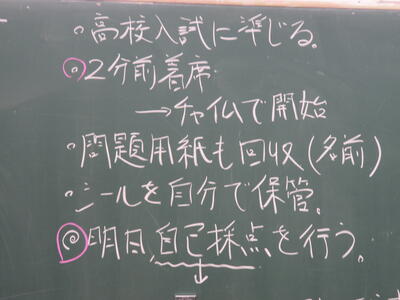 ・高校入試に準じる。
・2分前着席
→チャイムで開始
・問題用紙も回収(名前)
・シールを自分で保管。
◎明日、自己採点を行う。
↓